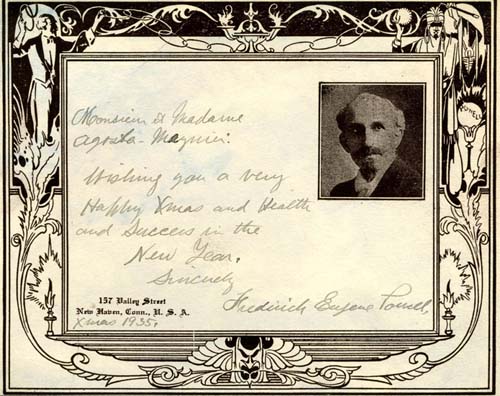 Monsieur et Madame
Agosta-Meynier:
Wishing you a very
Happy Xmas and Health
and Success in the
New Year.
Sincerely
Frederick Eugene Powell
157 Valley Street
New Haven, Conn., U. S. A.
Xmas 1935.